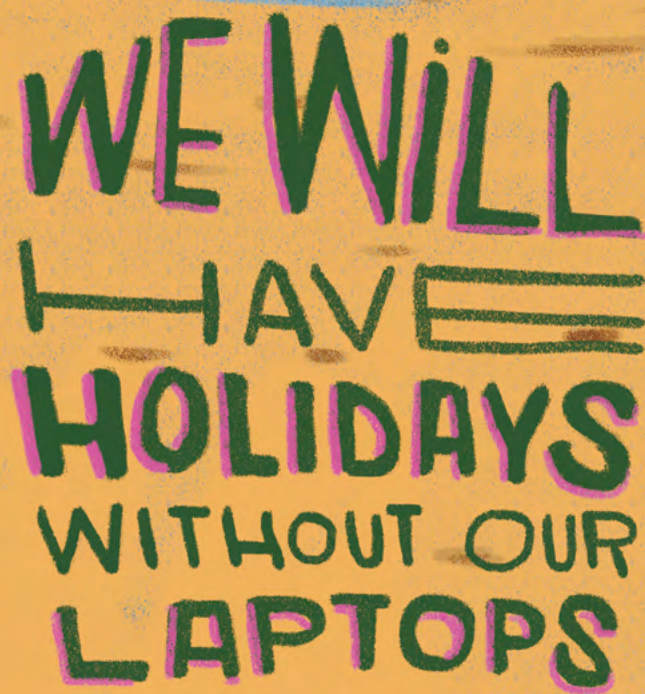 WE WiLL
HAVE
HOLIDAYS
WITHOUT OUR
LAPTOPS